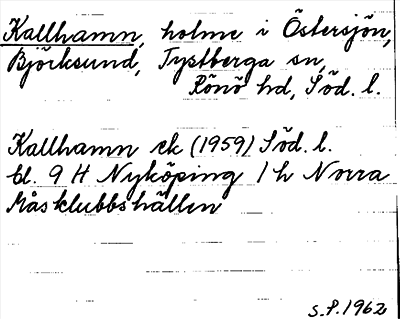 Kallhamn, holme i Östersjön,
Björksund, Tystberga sn,
Rönö hd, Söd. l.
Kallhamn ek (1959) Söd. l.
bl. 9 H Nyköping 1 h Norra
Måsklubbshällen
S.P. 1962